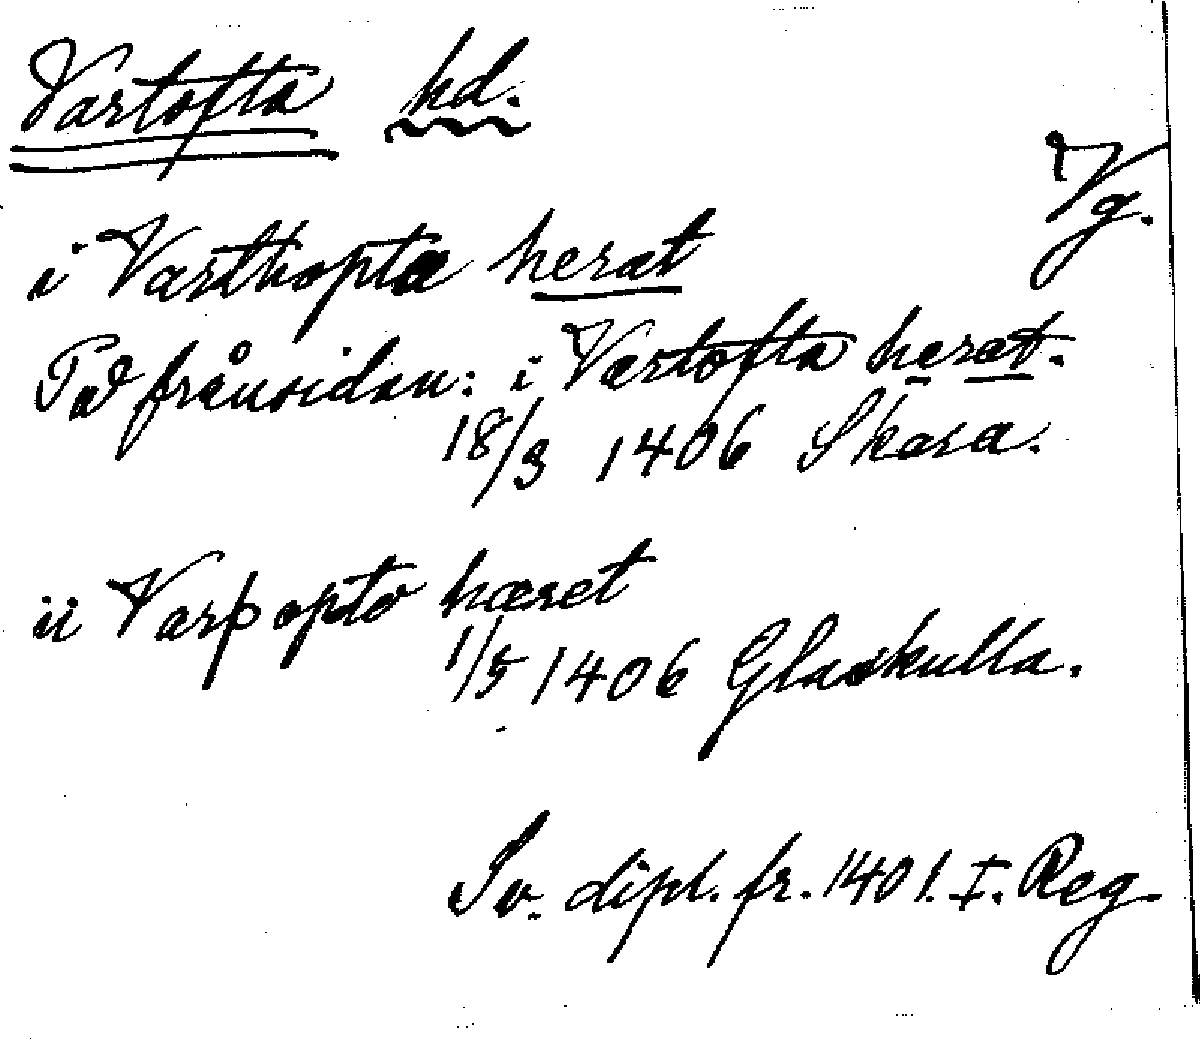 Vartofta hd.
Vg.
i Varthopta herat
På frånsidan: i Vartofta herat.
18/3 1406 Skara.
ii Varþopto hæret
1/5 1406 Glaskulla.
Sv. dipl. fr. 1401. I. Reg.